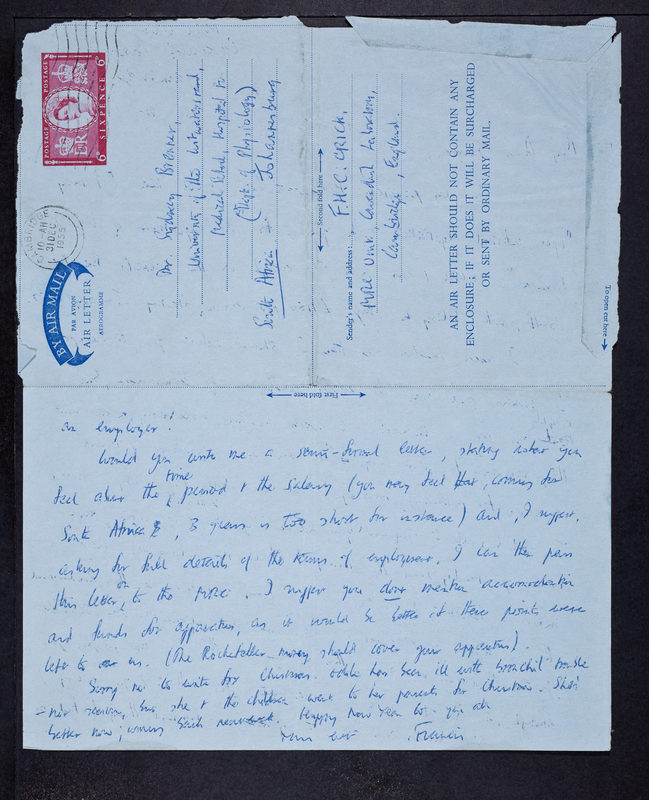 POSTAGE POSTAGE
6D SIXPENCE 6D
E R
CAMBRIDGE
10-AM
31 DEC
1955
BY AIR MAIL
PAR AVION
AIR LETTER
AEROGRAMME
Dr Sydney Brenner,
University of the Witwatersrand,
Medical School, Hospital St
(Dept. of Physiology)
Johannesburg
South Africa
← Second fold here →
Sender's name and address:— F.H.C. CRICK,
MRC Unit, Cavendish Laboratory,
Cambridge, England.
AN AIR LETTER SHOULD NOT CONTAIN ANY
ENCLOSURE; IF IT DOES IT WILL BE SURCHARGED
OR SENT BY ORDINARY MAIL.
To open cut here →
← First fold here →
an employer!
Would you write me a semi-formal letter, stating what you
feel about the time period & the salary (you may feel that, coming from
South Africa, 3 years is too short, for instance) and, I suppose,
asking for full details of the terms of employment. I can then pass
this letter on to the MRC. I suggest you don't mention accommodation
and funds for apparatus, as it would be better if these points were
left to us. (The Rockefeller money should cover your apparatus).
Sorry not to write for Christmas. Odile has been ill with bronchial trouble
- not serious, but she & the children went to her parents for Christmas. She's
better now, coming back. Happy New Year to you all
Yours ever Francis